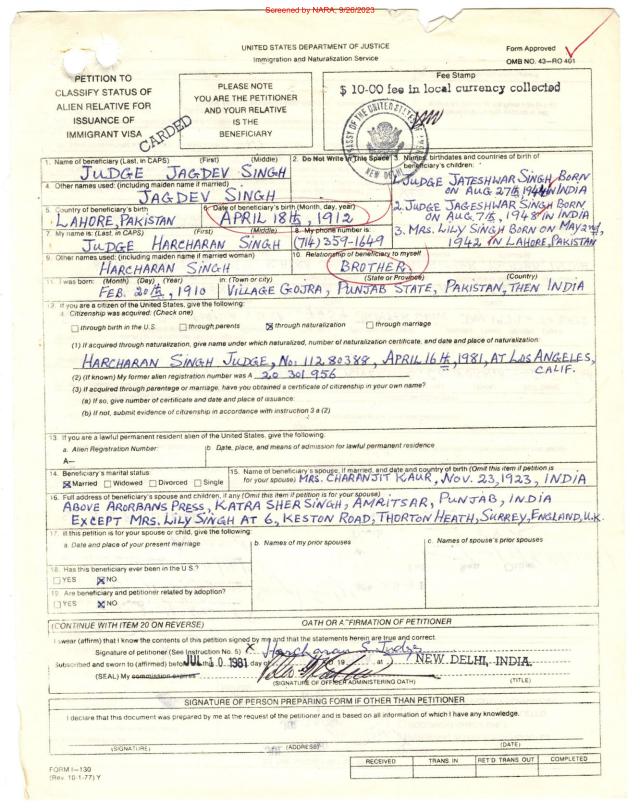 Screened by NARA, 9/26/2023
UNITED STATES DEPARTMENT OF JUSTICE
Immigration and Naturalization Service
Form Approved
OMB NO. 43—RO 401
PETITION TO
CLASSIFY STATUS OF
ALIEN RELATIVE FOR
ISSUANCE OF
IMMIGRANT VISA
CARDED
PLEASE NOTE
YOU ARE THE PETITIONER
AND YOUR RELATIVE
IS THE
BENEFICIARY
Fee Stamp
$ 10-00 fee in local currency collected
EMBASSY OF THE UNITED STATES OF AMERICA
NEW DELHI
1. Name of beneficiary (Last, in CAPS) (First) (Middle)
JUDGE JAGDEV SINGH
2. Do Not Write in This Space
3. Names, birthdates and countries of birth of beneficiary's children:
1. JUDGE JATESHWAR SINGH BORN
ON AUG. 27th, 1944 IN INDIA
2. JUDGE JAGESHWAR SINGH BORN
ON AUG. 7th, 1948 IN INDIA
3. MRS. LILY SINGH BORN ON MAY 2nd,
1942, IN LAHORE, PAKISTAN
4. Other names used: (including maiden name if married)
JAGDEV SINGH
5. Country of beneficiary's birth
LAHORE, PAKISTAN
6. Date of beneficiary's birth (Month, day, year)
APRIL 18th, 1912
7. My name is: (Last, in CAPS) (First) (Middle)
JUDGE HARCHARAN SINGH
8. My phone number is:
(714) 359-1649
9. Other names used: (including maiden name if married woman)
HARCHARAN SINGH
10. Relationship of beneficiary to myself
BROTHER
11. I was born: (Month) (Day) (Year) in: (Town or city) (State or Province) (Country)
FEB. 20th, 1910 VILLAGE GOJRA, PUNJAB STATE, PAKISTAN, THEN INDIA
12. If you are a citizen of the United States, give the following:
a. Citizenship was acquired: (Check one)
through birth in the U.S. through parents ☒ through naturalization through marriage
(1) If acquired through naturalization, give name under which naturalized, number of naturalization certificate, and date and place of naturalization:
HARCHARAN SINGH JUDGE, No: 11280388, APRIL 16th, 1981, AT LOS ANGELES,
CALIF.
(2) (If known) My former alien registration number was A 20 301 956
(3) If acquired through parentage or marriage, have you obtained a certificate of citizenship in your own name?
(a) If so, give number of certificate and date and place of issuance:
(b) If not, submit evidence of citizenship in accordance with instruction 3 a (2)
13. If you are a lawful permanent resident alien of the United States, give the following:
a. Alien Registration Number: b. Date, place, and means of admission for lawful permanent residence
A—
14. Beneficiary's marital status:
☒ Married Widowed Divorced Single
15. Name of beneficiary's spouse, if married, and date and country of birth (Omit this item if petition is
for your spouse) MRS. CHARANJIT KAUR, NOV. 23, 1923, INDIA
16. Full address of beneficiary's spouse and children, if any (Omit this item if petition is for your spouse)
ABOVE ARORBANS PRESS, KATRA SHER SINGH, AMRITSAR, PUNJAB, INDIA
EXCEPT MRS. LILY SINGH AT 6, KESTON ROAD, THORTON HEATH, SURREY, ENGLAND, U.K.
17. If this petition is for your spouse or child, give the following:
a. Date and place of your present marriage b. Names of my prior spouses c. Names of spouse's prior spouses
18. Has this beneficiary ever been in the U.S.?
YES ☒ NO
19. Are beneficiary and petitioner related by adoption?
YES ☒ NO
(CONTINUE WITH ITEM 20 ON REVERSE) OATH OR AFFIRMATION OF PETITIONER
I swear (affirm) that I know the contents of this petition signed by me and that the statements herein are true and correct.
Signature of petitioner (See Instruction No. 5) X Harcharan S. Judge
Subscribed and sworn to (affirmed) before JUL 10 1981 day of 19 at NEW DELHI, INDIA.
(SEAL) My commission expires (SIGNATURE OF OFFICER ADMINISTERING OATH) (TITLE)
SIGNATURE OF PERSON PREPARING FORM IF OTHER THAN PETITIONER
I declare that this document was prepared by me at the request of the petitioner and is based on all information of which I have any knowledge.
(SIGNATURE) (ADDRESS) (DATE)
FORM I—130
(Rev. 10-1-77) Y
RECEIVED TRANS IN RET'D TRANS OUT COMPLETED